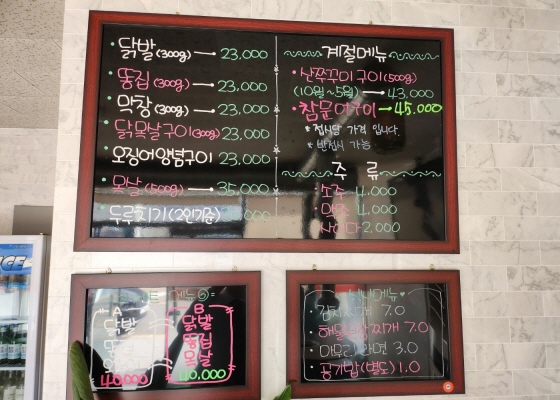 닭발 (300g) → 23,000
똥집 (300g) → 23,000
막창 (300g) → 23,000
닭목살구이(300g) 23,000
오징어양념구이 23,000
목살 (500g) → 35,000
두루치기 (2인기준)
계절메뉴
산쭈꾸미 구이(500g)
(10월~5월) → 43,000
참문어구이 → 45,000
* 접시당 가격 입니다.
* 반접시 가능
주 류
소주 4,000
맥주 4,000
사이다 2,000
메뉴
A
닭발
똥집
40,000
B
닭발
똥집
목살
40,000
김치찌개 7.0
해물 찌개 7.0
마무리 라면 3.0
공기밥(별도) 1.0